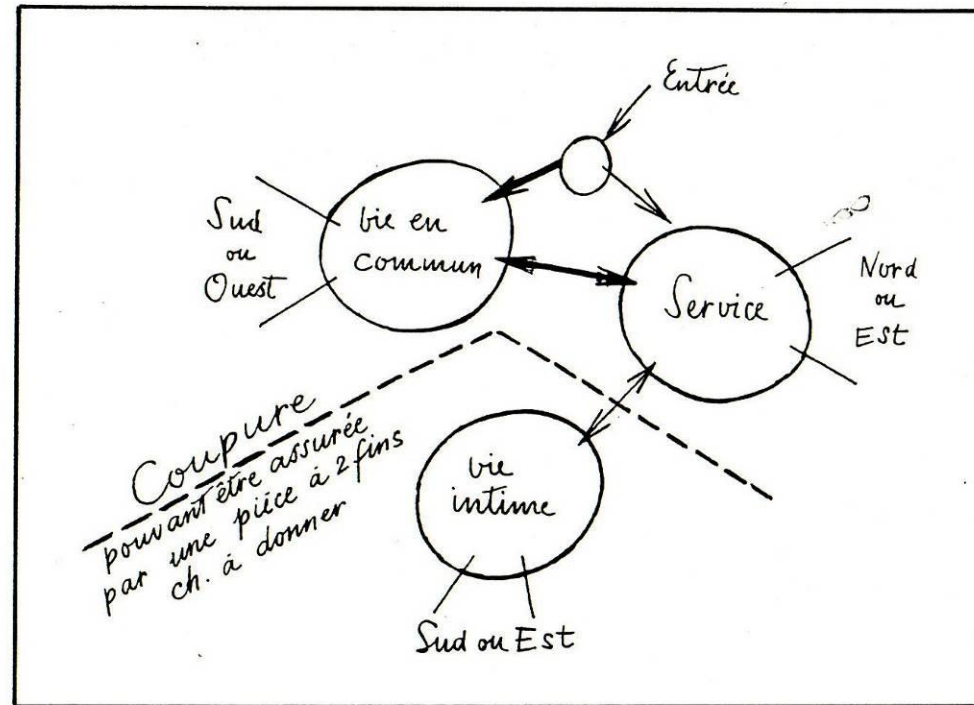 Entrée
Sud
ou
Ouest
vie en
commun
Service
Nord
ou
Est
Coupure
pouvant être assurée
par une pièce à 2 fins
ch. à donner
vie
intime
Sud ou Est